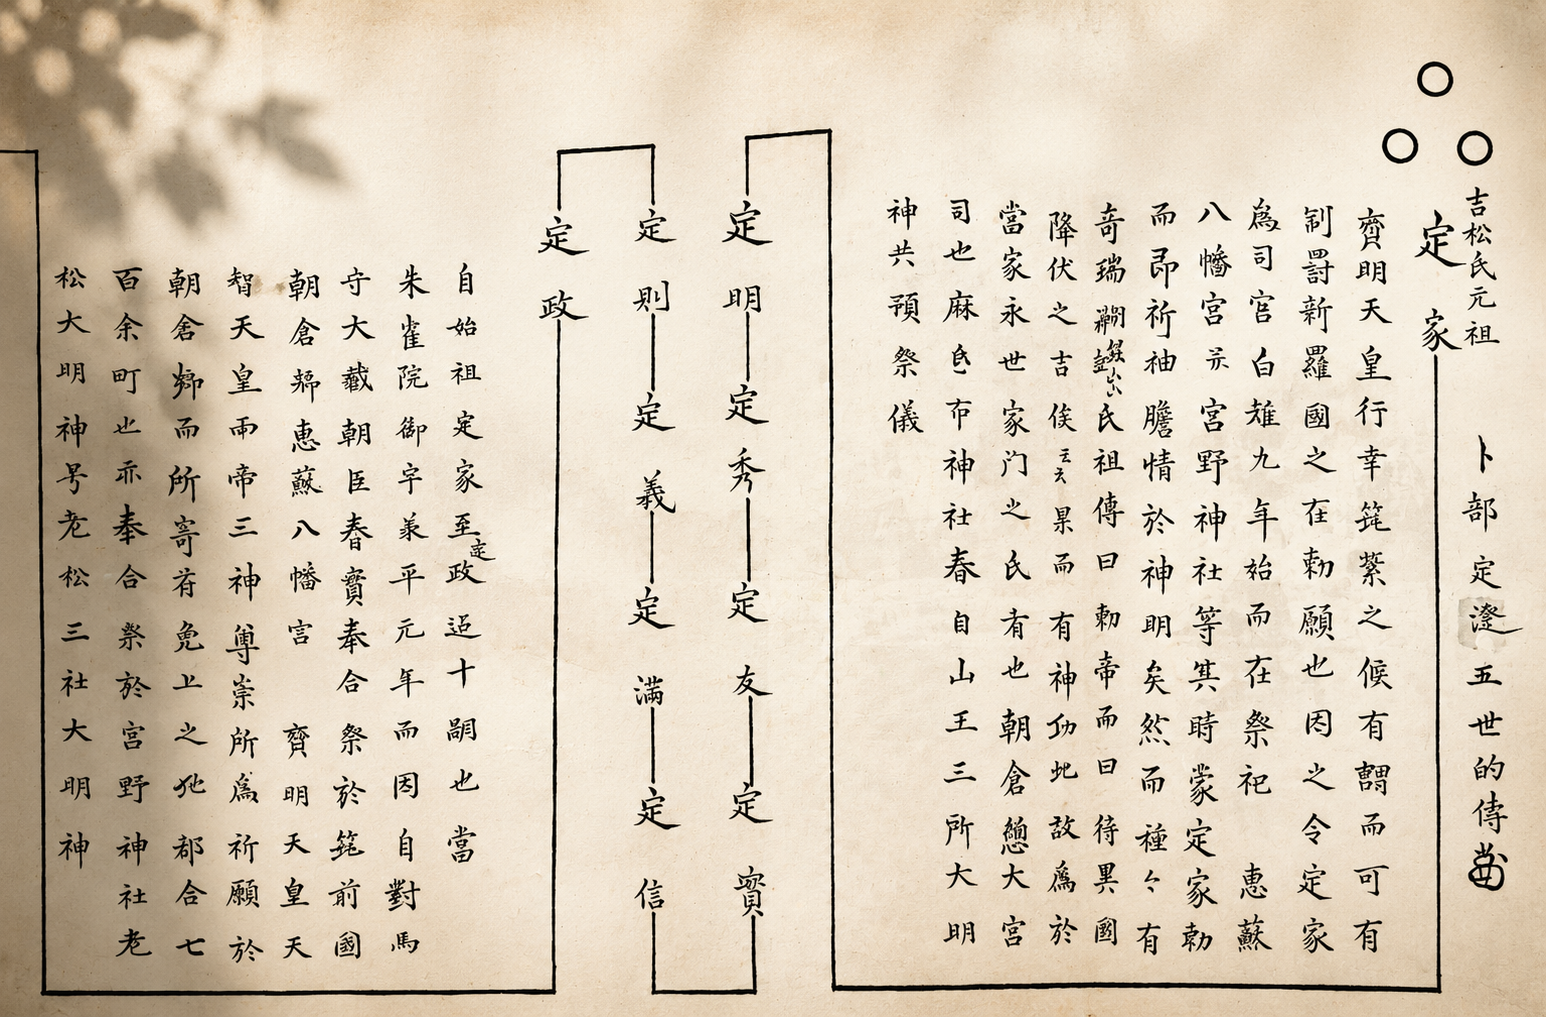 吉松氏元祖
卜部定澄五世的傳
定家
齊明天皇行幸筑紫之候有謂而可有
制罸新羅國之在勅願也因之令定家
爲司官白雉九年始而在祭祀 恵蘇
八幡宮并宮野神社等其時蒙定家勅
而即祈袖膽情於神明矣然而種々有
竒瑞氏祖傳曰勅帝而曰待異國
降伏之吉俟云云果而有神功地故爲於
當家永世家门之氏有也朝倉惣大宮
司也麻氐布神社春自山王三所大明
神共預祭儀
定明
定秀
定友
定寳
定則
定義
定満
定信
定政
自始祖定家至定政迠十嗣也當
朱雀院御宇兼平元年而因自對馬
守大藏朝臣春實奉合祭於筑前國
朝倉郷恵蘇八幡宮 齊明天皇天
智天皇両帝三神尊崇所爲祈願於
朝倉郷而所寄苻免上之地都合七
百余町也亦奉合祭於宮野神社老
松大明神号老松三社大明神